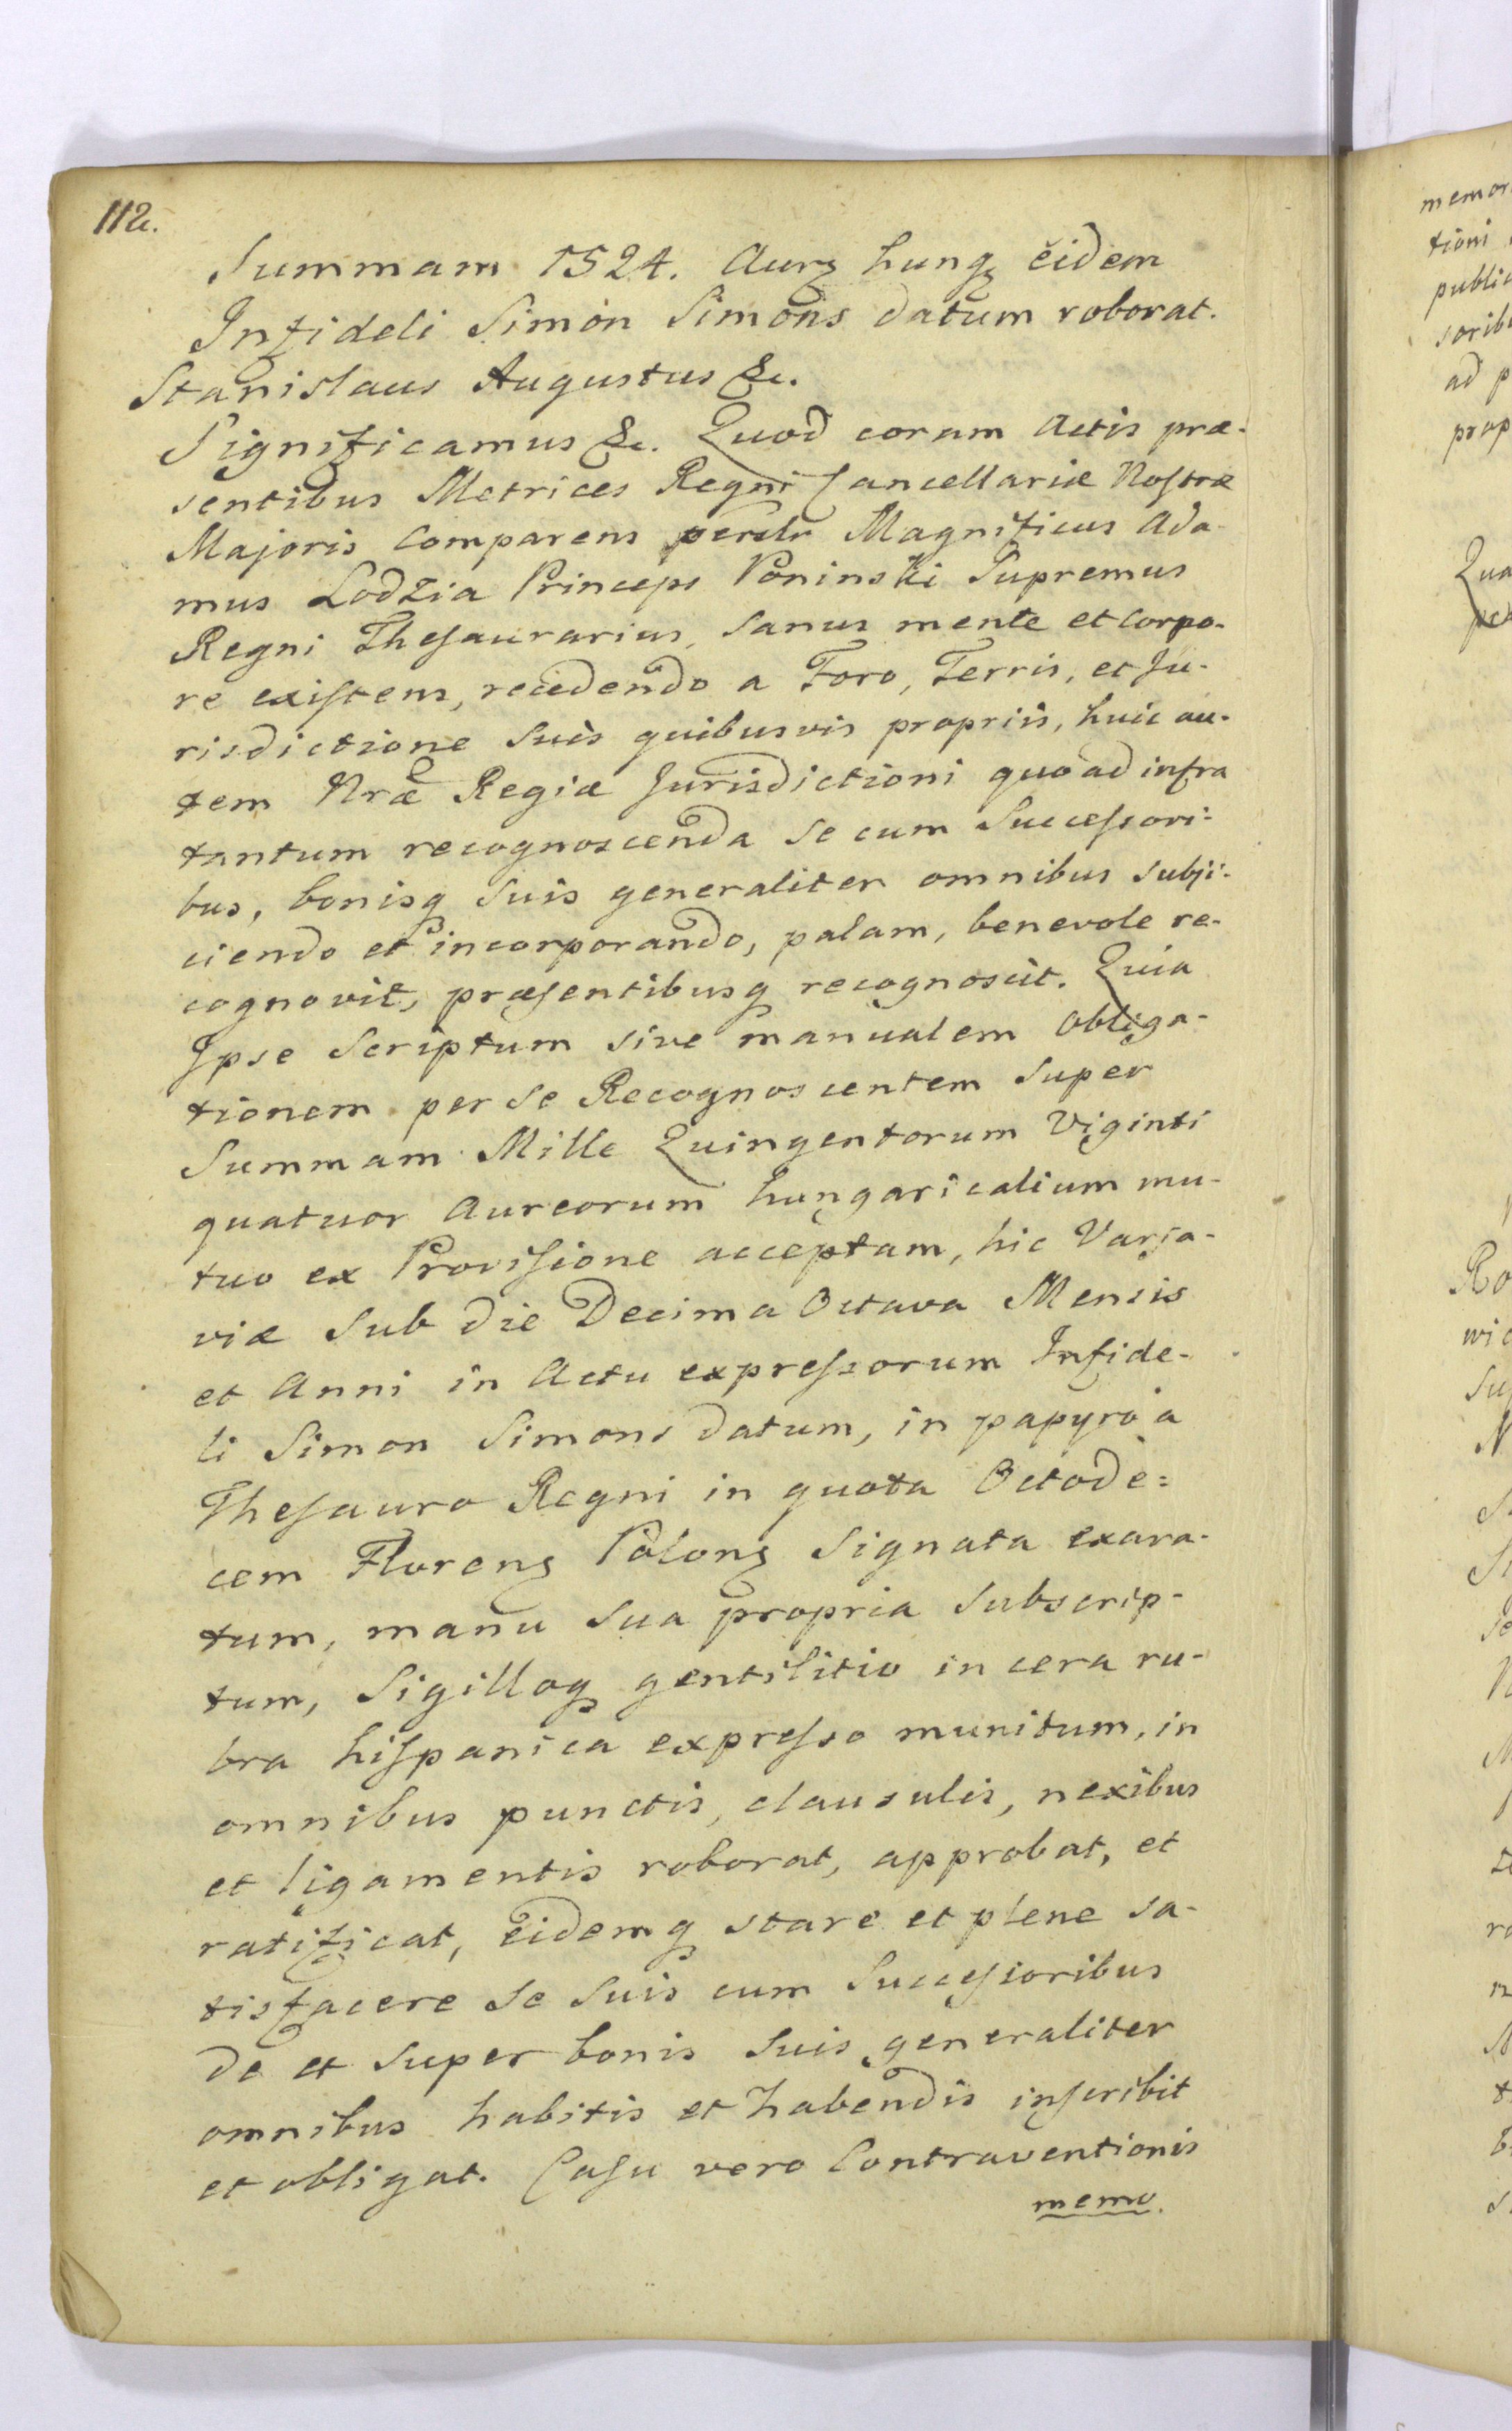 112.
Summam 1524. Aurꝫ hungꝫ eidem
Infideli Simon Simons datum roborat.
Stanislaus Augustus &c.
Significamus &c. Quod coram Actis præ-
sentibus Metrices Regni Cancellariæ Nostræ
Majoris Comparens persltr Magnificus Ada-
mus Lodzia Princeps Poninski Supremus
Regni Thesaurarius, sanus mente et corpo-
re existens, recedendo a Foro, Terris, et Ju-
risdictione suis quibusvis propriis, huic au-
tem Nræ Regiæ Jurisdictioni quo ad infra
tantum recognoscenda se cum Successori-
bus, bonisq suis generaliter omnibus subji-
ciendo et incorporando, palam, benevole re-
cognovit, præsentibusq recognoscit. Quia
Ipse Scriptum sive manualem obliga-
tionem per se Recognoscentem super
Summam Mille Quingentorum Viginti
quatuor Aureorum hungaricalium mu-
tuo ex Provisione acceptam, hic Varsa-
viæ sub die Decima Octava Mensis
et Anni in Actu expressorum Infide-
li Simon Simons datum, in papyro a
Thesauro Regni in quota Octode=
cem Florenꝫ Polonꝫ signata exara-
tum, manu sua propria subscrip-
tum, Sigilloq gentilitio in cera ru-
bra hispanica expresso munitum, in
omnibus punctis, clausulis, nexibus
et ligamentis roborat, approbat, et
ratificat, eidemq stare et plene sa-
tisfacere se suis cum Successoribus
de et super bonis suis generaliter
omnibus habitis et habendis inscribit
et obligat. Casu vero Contraventionis
memo.
memor
tioni
public
soribu
ad p
prop
Qua
Ro
wic